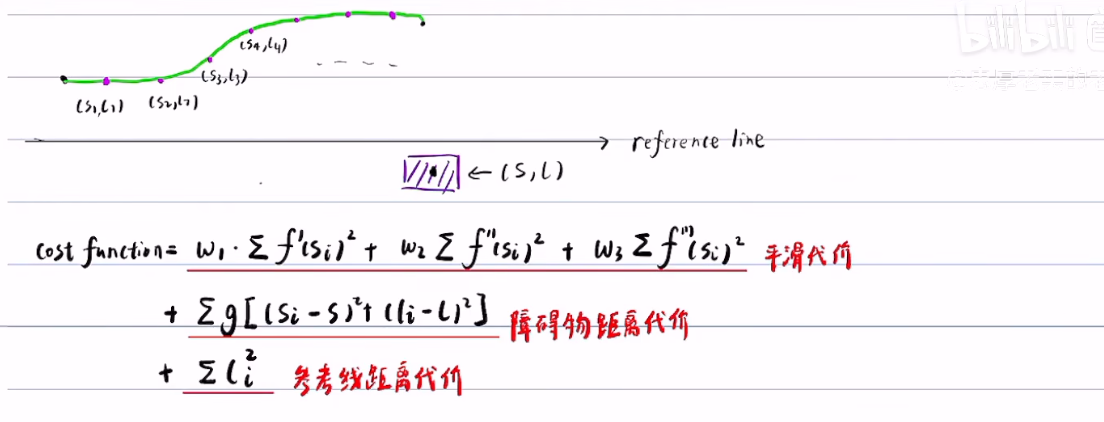 bilibili
(S₄,l₄)
(S₃,l₃)
(S₁,l₁) (S₂,l₂)
reference line
← (S,l)
cost function = w₁·Σf'(sᵢ)² + w₂Σf''(sᵢ)² + w₃Σf'''(sᵢ)² 平滑代价
+ Σg[(sᵢ-s)²+(lᵢ-l)²] 障碍物距离代价
+ Σlᵢ² 参考线距离代价